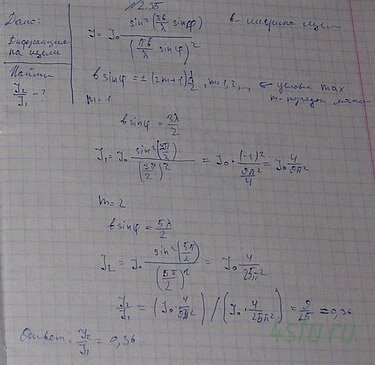 №2.35
Дано:
Дифракция
на щели
Найти
J₂/J₁ - ?
J = J₀ sin²(πb/λ sinφ) / (πb/λ sinφ)²
b - ширина щели
b sinφ = ±(2m+1) λ/2, m=1,2,... условие max
m=1
b sinφ = 3λ/2
J₁ = J₀ sin²(3π/2) / (3π/2)² = J₀ · (-1)² / (9π²/4) = J₀ 4/9π²
m=2
b sinφ = 5λ/2
J₂ = J₀ sin²(5π/2) / (5π/2)² = J₀ 4/25π²
J₂/J₁ = (J₀ · 4/9π²) / (J₀ · 4/25π²) = 9/25 = 0,36
Ответ: J₂/J₁ = 0,36.
4stu.ru